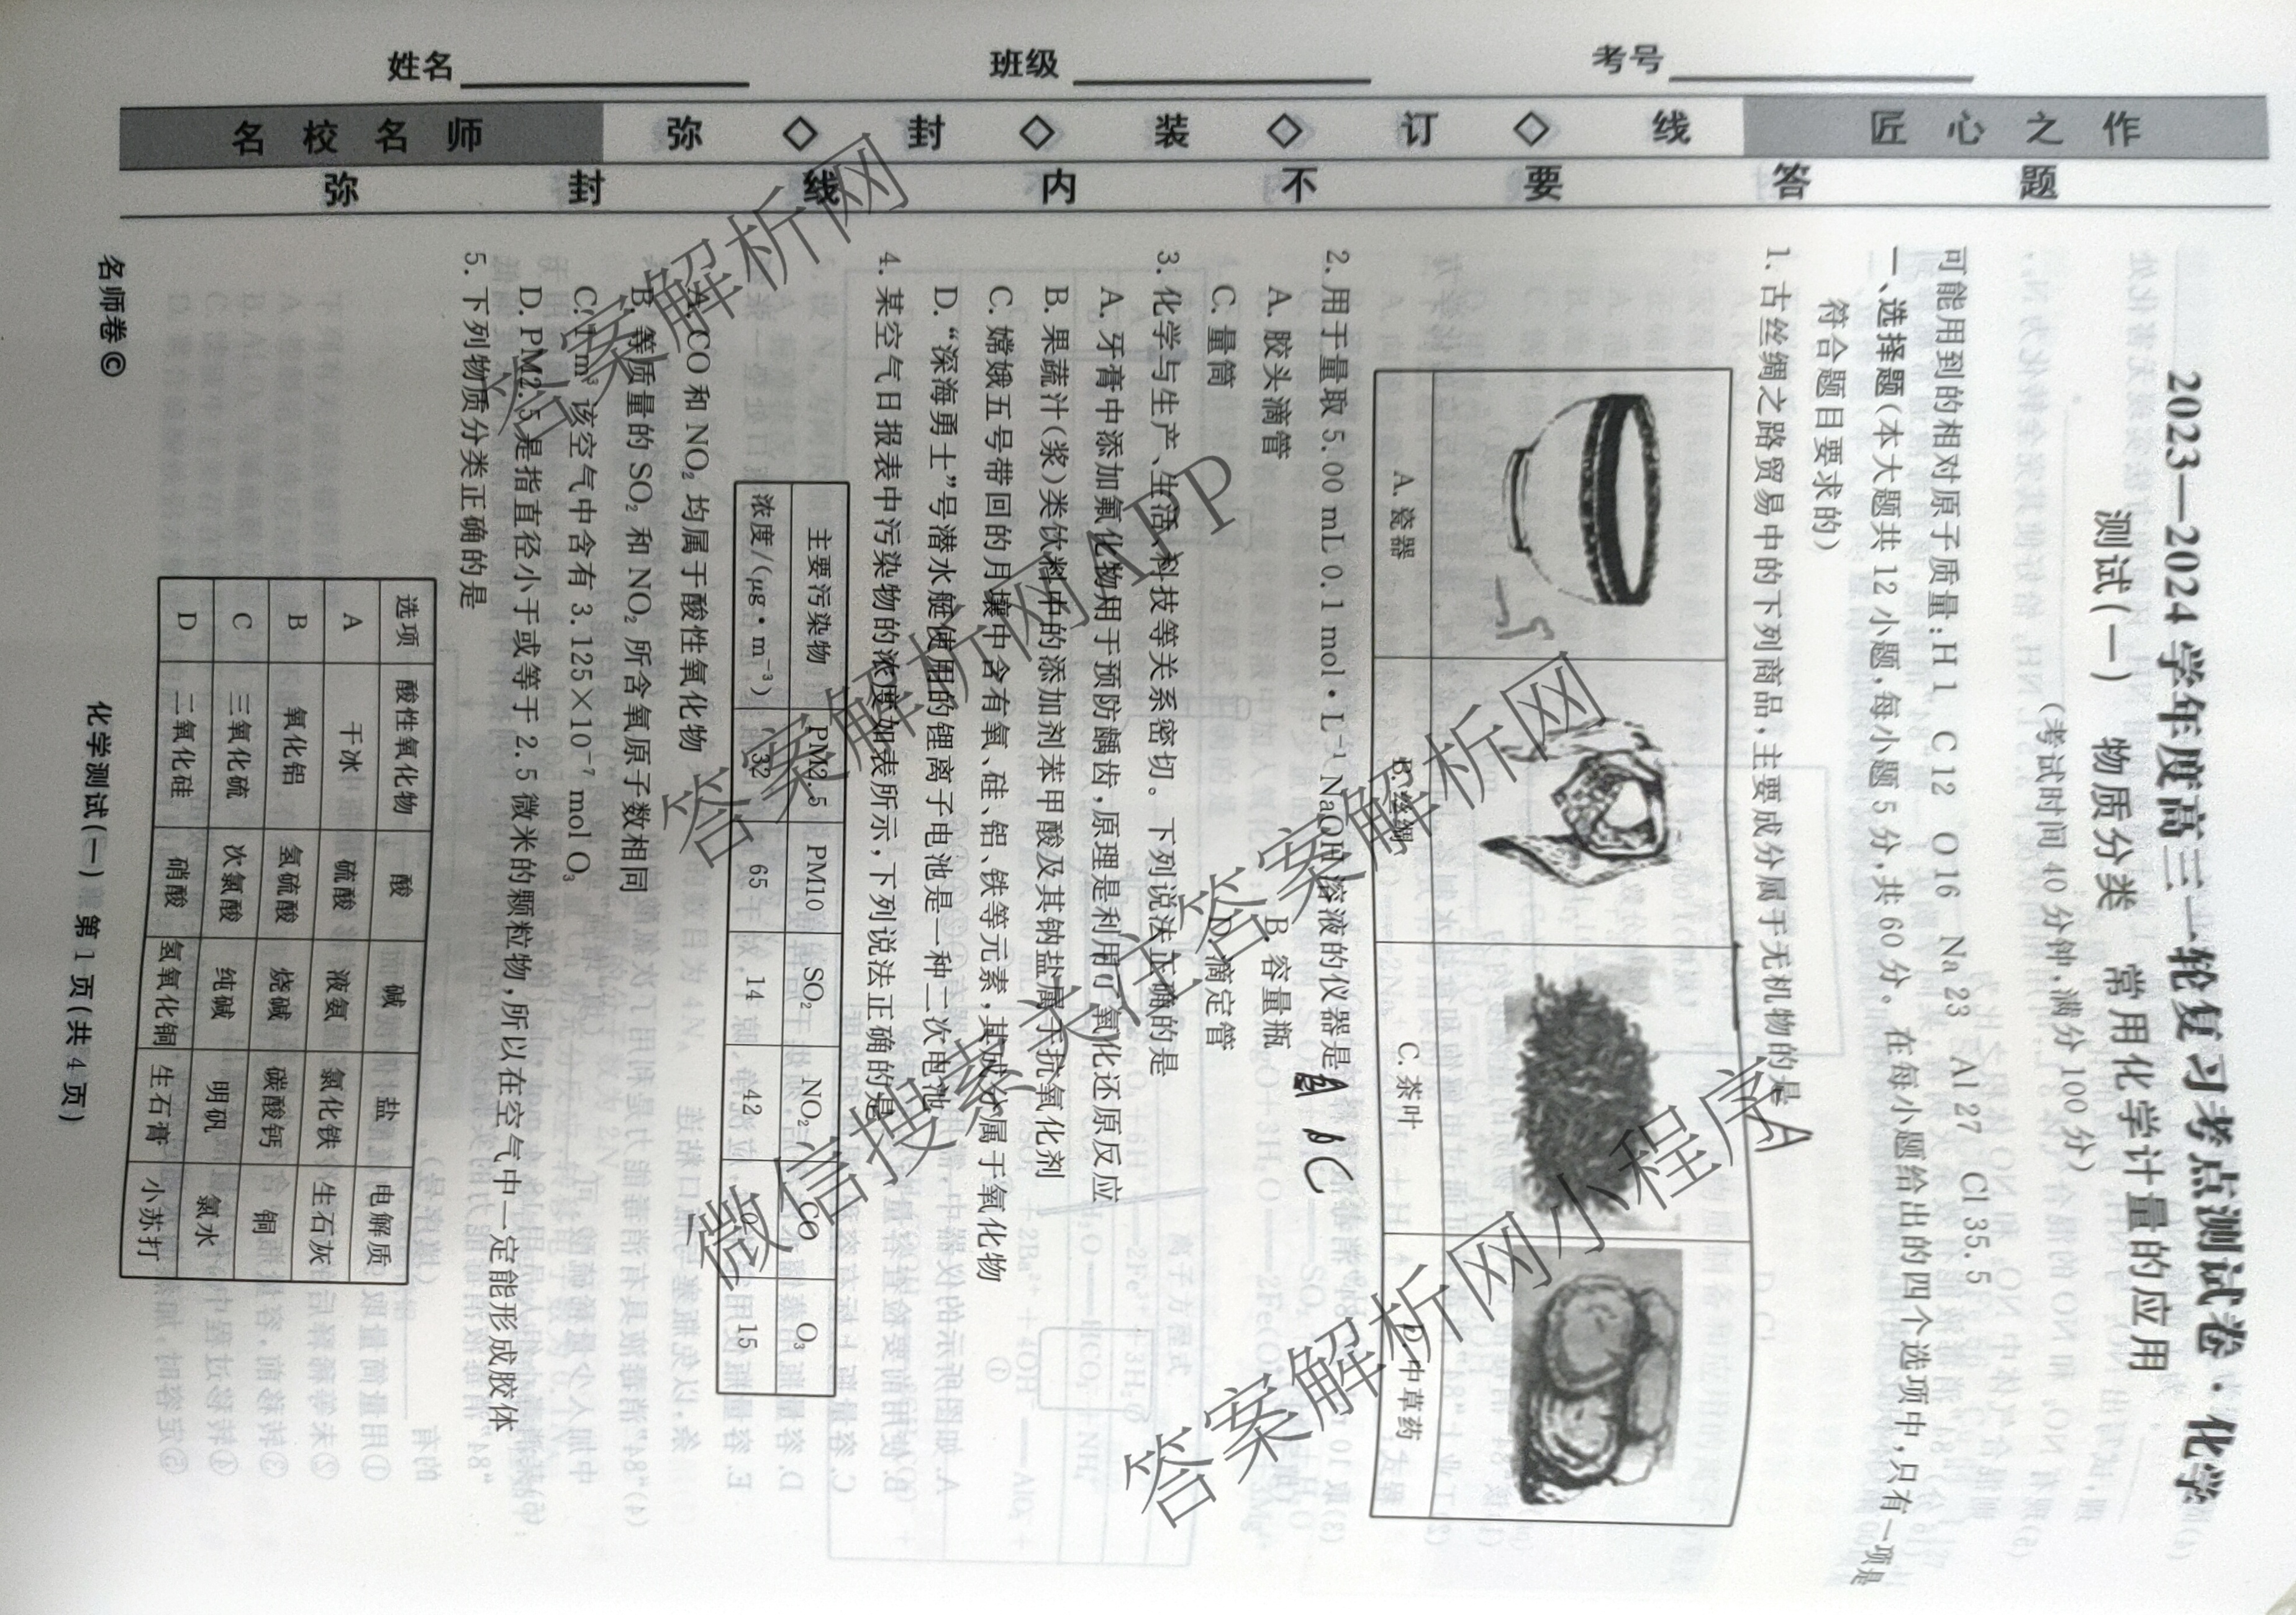 姓名 班级 考号
名校名师 弥◇封◇装◇订◇线 匠心之作
弥封线内不要答题
2023—2024学年度高三一轮复习考点测试卷·化学
测试(一) 物质分类 常用化学计量的应用
(考试时间40分钟,满分100分)
可能用到的相对原子质量:H 1 C 12 O 16 Na 23 Al 27 Cl 35.5
一、选择题(本大题共12小题,每小题5分,共60分。在每小题给出的四个选项中,只有一项是
符合题目要求的)
1.古丝绸之路贸易中的下列商品,主要成分属于无机物的是 A
A.瓷器 B.丝绸 C.茶叶 D.中草药
2.用于量取5.00 mL 0.1 mol·L⁻¹ NaOH溶液的仪器是 C
A.胶头滴管 B.容量瓶
C.量筒 D.滴定管
3.化学与生产、生活、科技等关系密切。下列说法正确的是
A.牙膏中添加氟化物用于预防龋齿,原理是利用了氧化还原反应
B.果蔬汁(浆)类饮料中的添加剂苯甲酸及其钠盐属于抗氧化剂
C.嫦娥五号带回的月壤中含有氧、硅、铝、铁等元素,其成分属于氧化物
D.“深海勇士”号潜水艇使用的锂离子电池是一种二次电池
4.某空气日报表中污染物的浓度如表所示,下列说法正确的是
主要污染物 PM2.5 PM10 SO₂ NO₂ CO O₃
浓度/(μg·m⁻³) 32 65 14 42 15
A.CO和NO₂均属于酸性氧化物
B.等质量的SO₂和NO₂所含氧原子数相同
C.1 m³该空气中含有3.125×10⁻⁷ mol O₃
D.PM2.5是指直径小于或等于2.5微米的颗粒物,所以在空气中一定能形成胶体
5.下列物质分类正确的是
选项 酸性氧化物 酸 碱 盐 电解质
A 干冰 硫酸 液氨 氯化铁 生石灰
B 氧化铝 氢硫酸 烧碱 碳酸钙 铜
C 三氧化硫 次氯酸 纯碱 明矾 氯水
D 二氧化硅 硝酸 氢氧化铜 生石膏 小苏打
名师卷© 化学测试(一) 第1页(共4页)
答案解析网
答案解析网APP
微信搜索关注答案解析网
答案解析网小程序